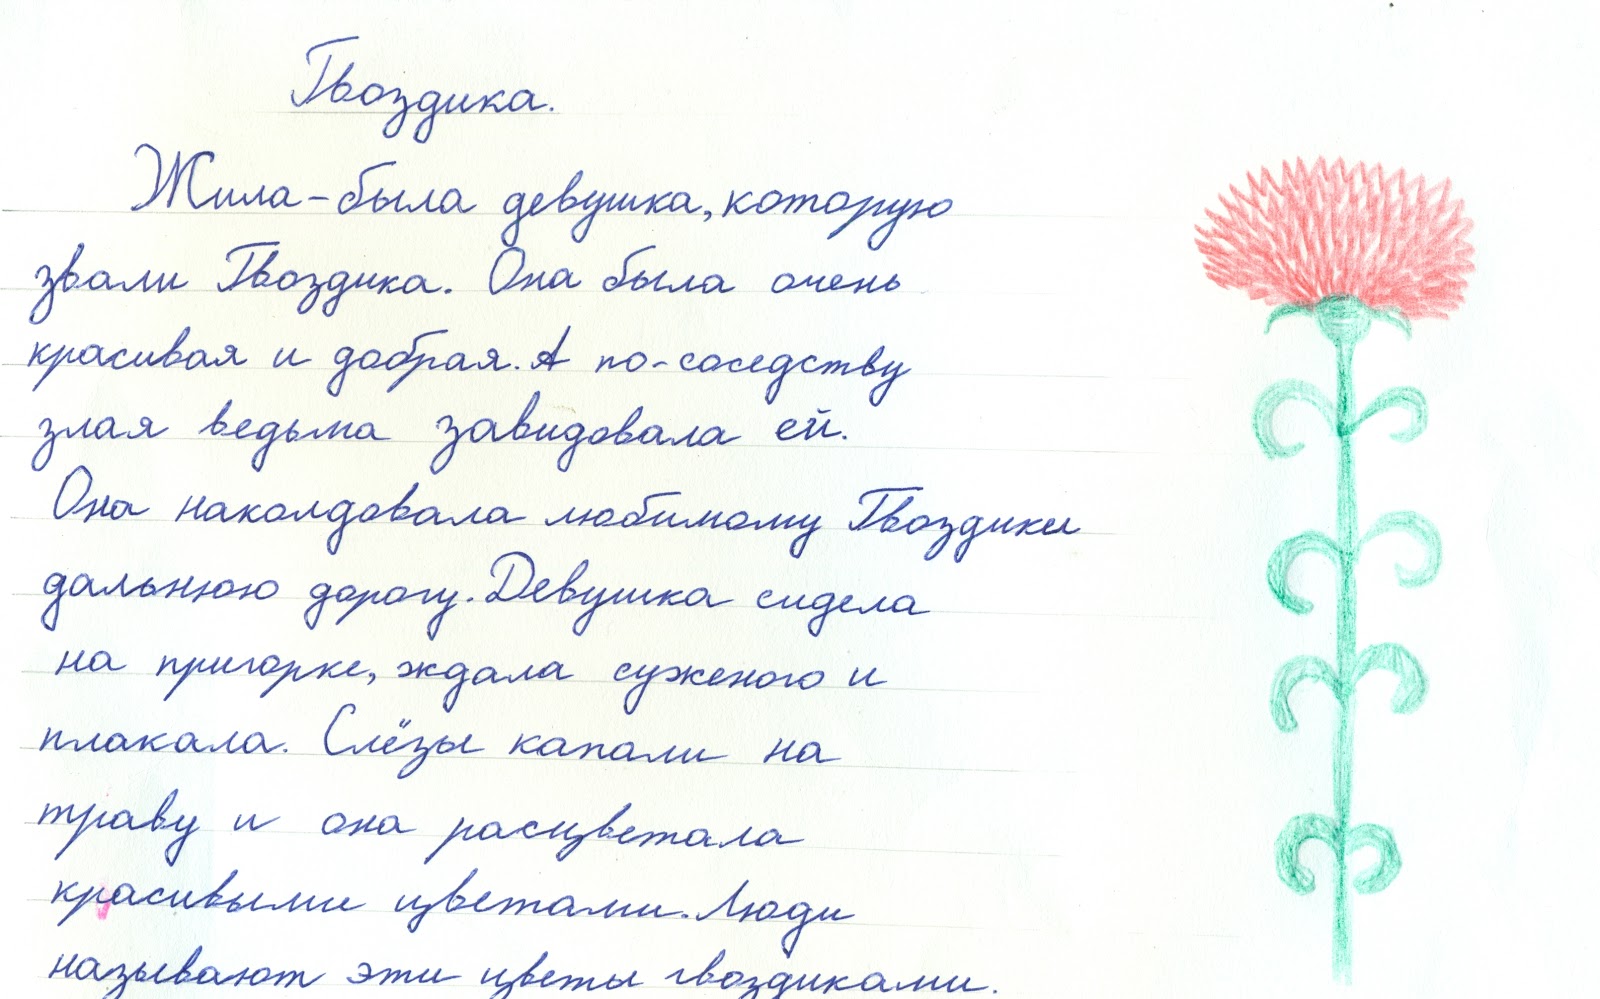 Гвоздика.
Жила-была девушка, которую
звали Гвоздика. Она была очень
красивая и добрая. А по-соседству
злая ведьма завидовала ей.
Она наколдовала любимому Гвоздики
дальнюю дорогу. Девушка сидела
на пригорке, ждала суженого и
плакала. Слёзы капали на
траву и она расцветала
красивыми цветами. Люди
называют эти цветы гвоздиками.